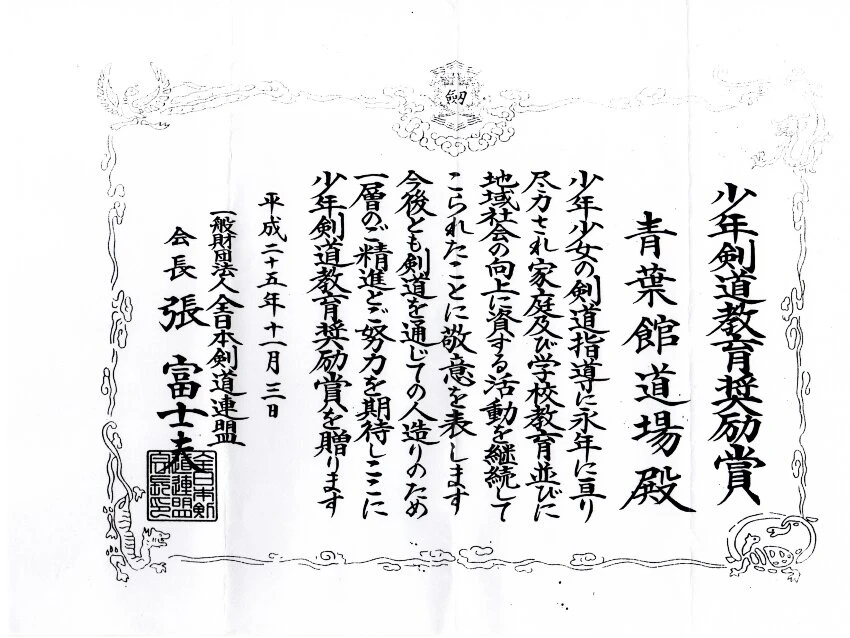 剣
少年剣道教育奨励賞
青葉館道場殿
少年少女の剣道指導に永年に亘り
尽力され家庭及び学校教育並びに
地域社会の向上に資する活動を継続して
こられたことに敬意を表します
今後とも剣道を通じての人造りのため
一層のご精進とご努力を期待しここに
少年剣道教育奨励賞を贈ります
平成二十五年十一月三日
一般財団法人全日本剣道連盟
会長 張富士夫
全日本剣
道連盟
会長印